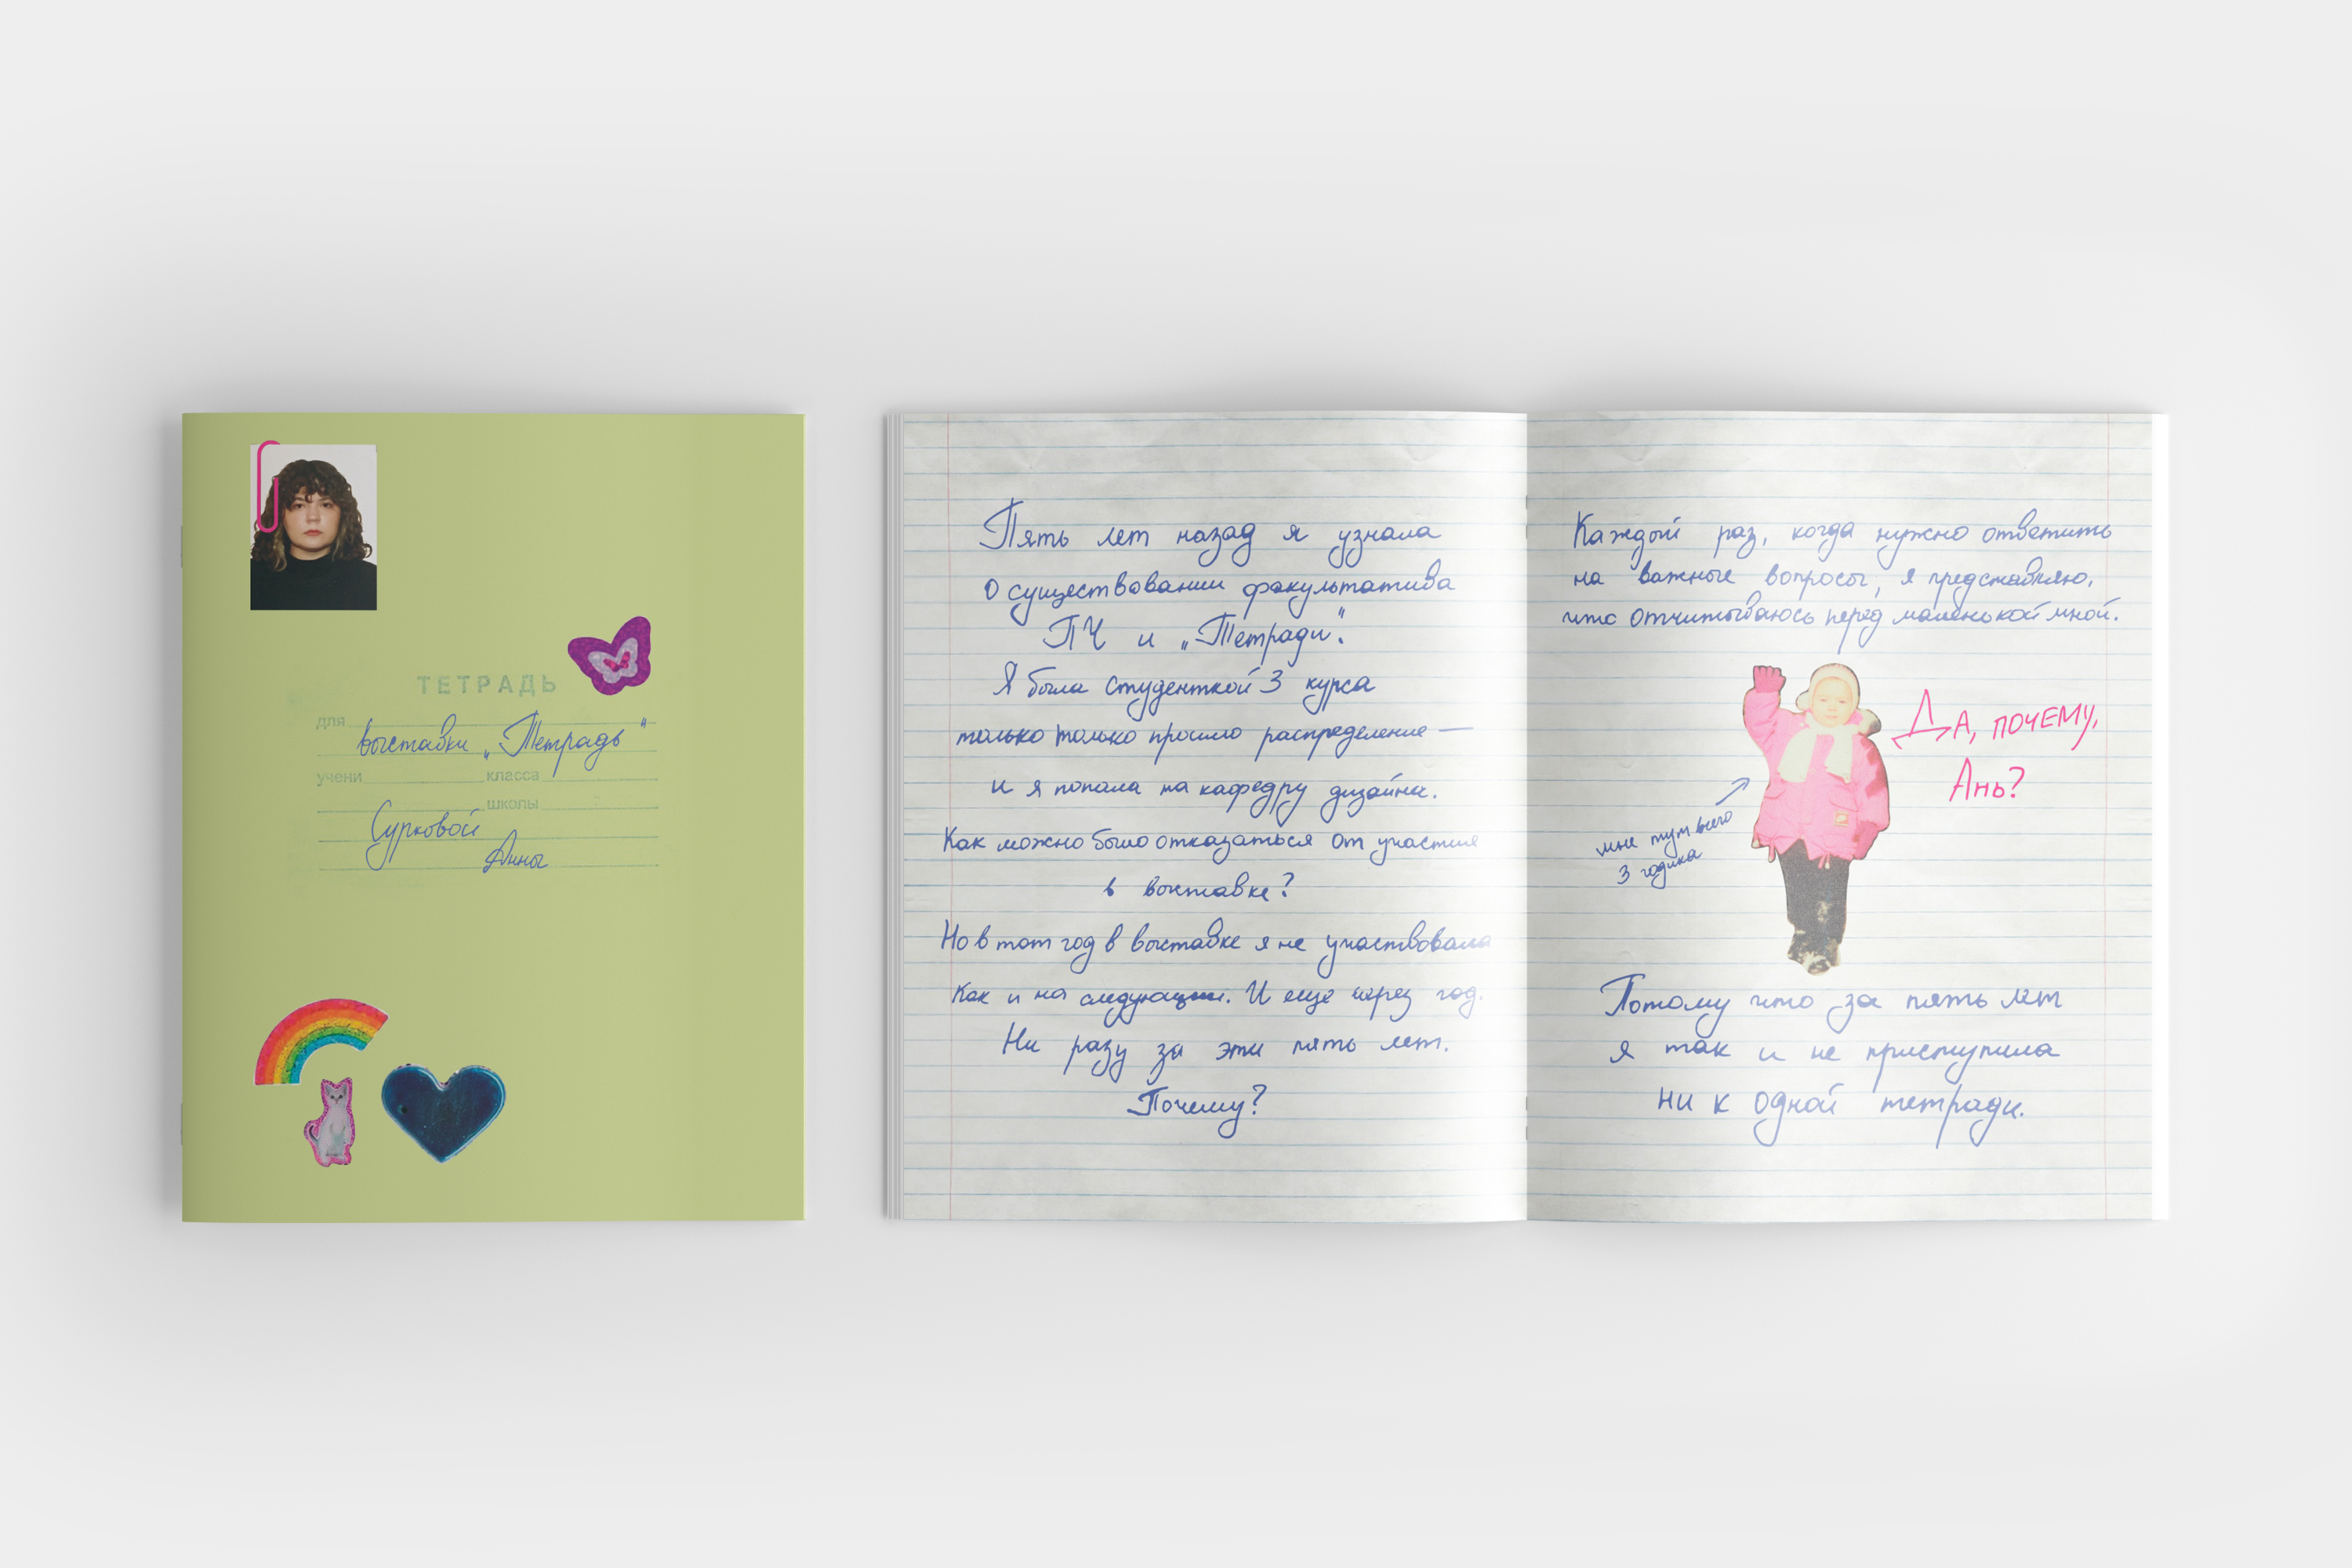 ТЕТРАДЬ
для выставки „Тетрадь“
учени класса
школы
Сурковой
Анны
Пять лет назад я узнала
о существовании факультатива
ПЧ и „Тетради“.
Я была студенткой 3 курса
только только прошло распределение —
и я попала на кафедру дизайна.
Как можно было отказаться от участия
в выставке?
Но в тот год в выставке я не участвовала
Как и на следующий. И еще через год.
Ни разу за эти пять лет.
Почему?
Каждый раз, когда нужно ответить
на важные вопросы, я представляю,
что отчитываюсь перед маленькой мной.
Да, почему,
Ань?
мне тут всего
3 годика
Потому что за пять лет
я так и не приступила
ни к одной тетради.